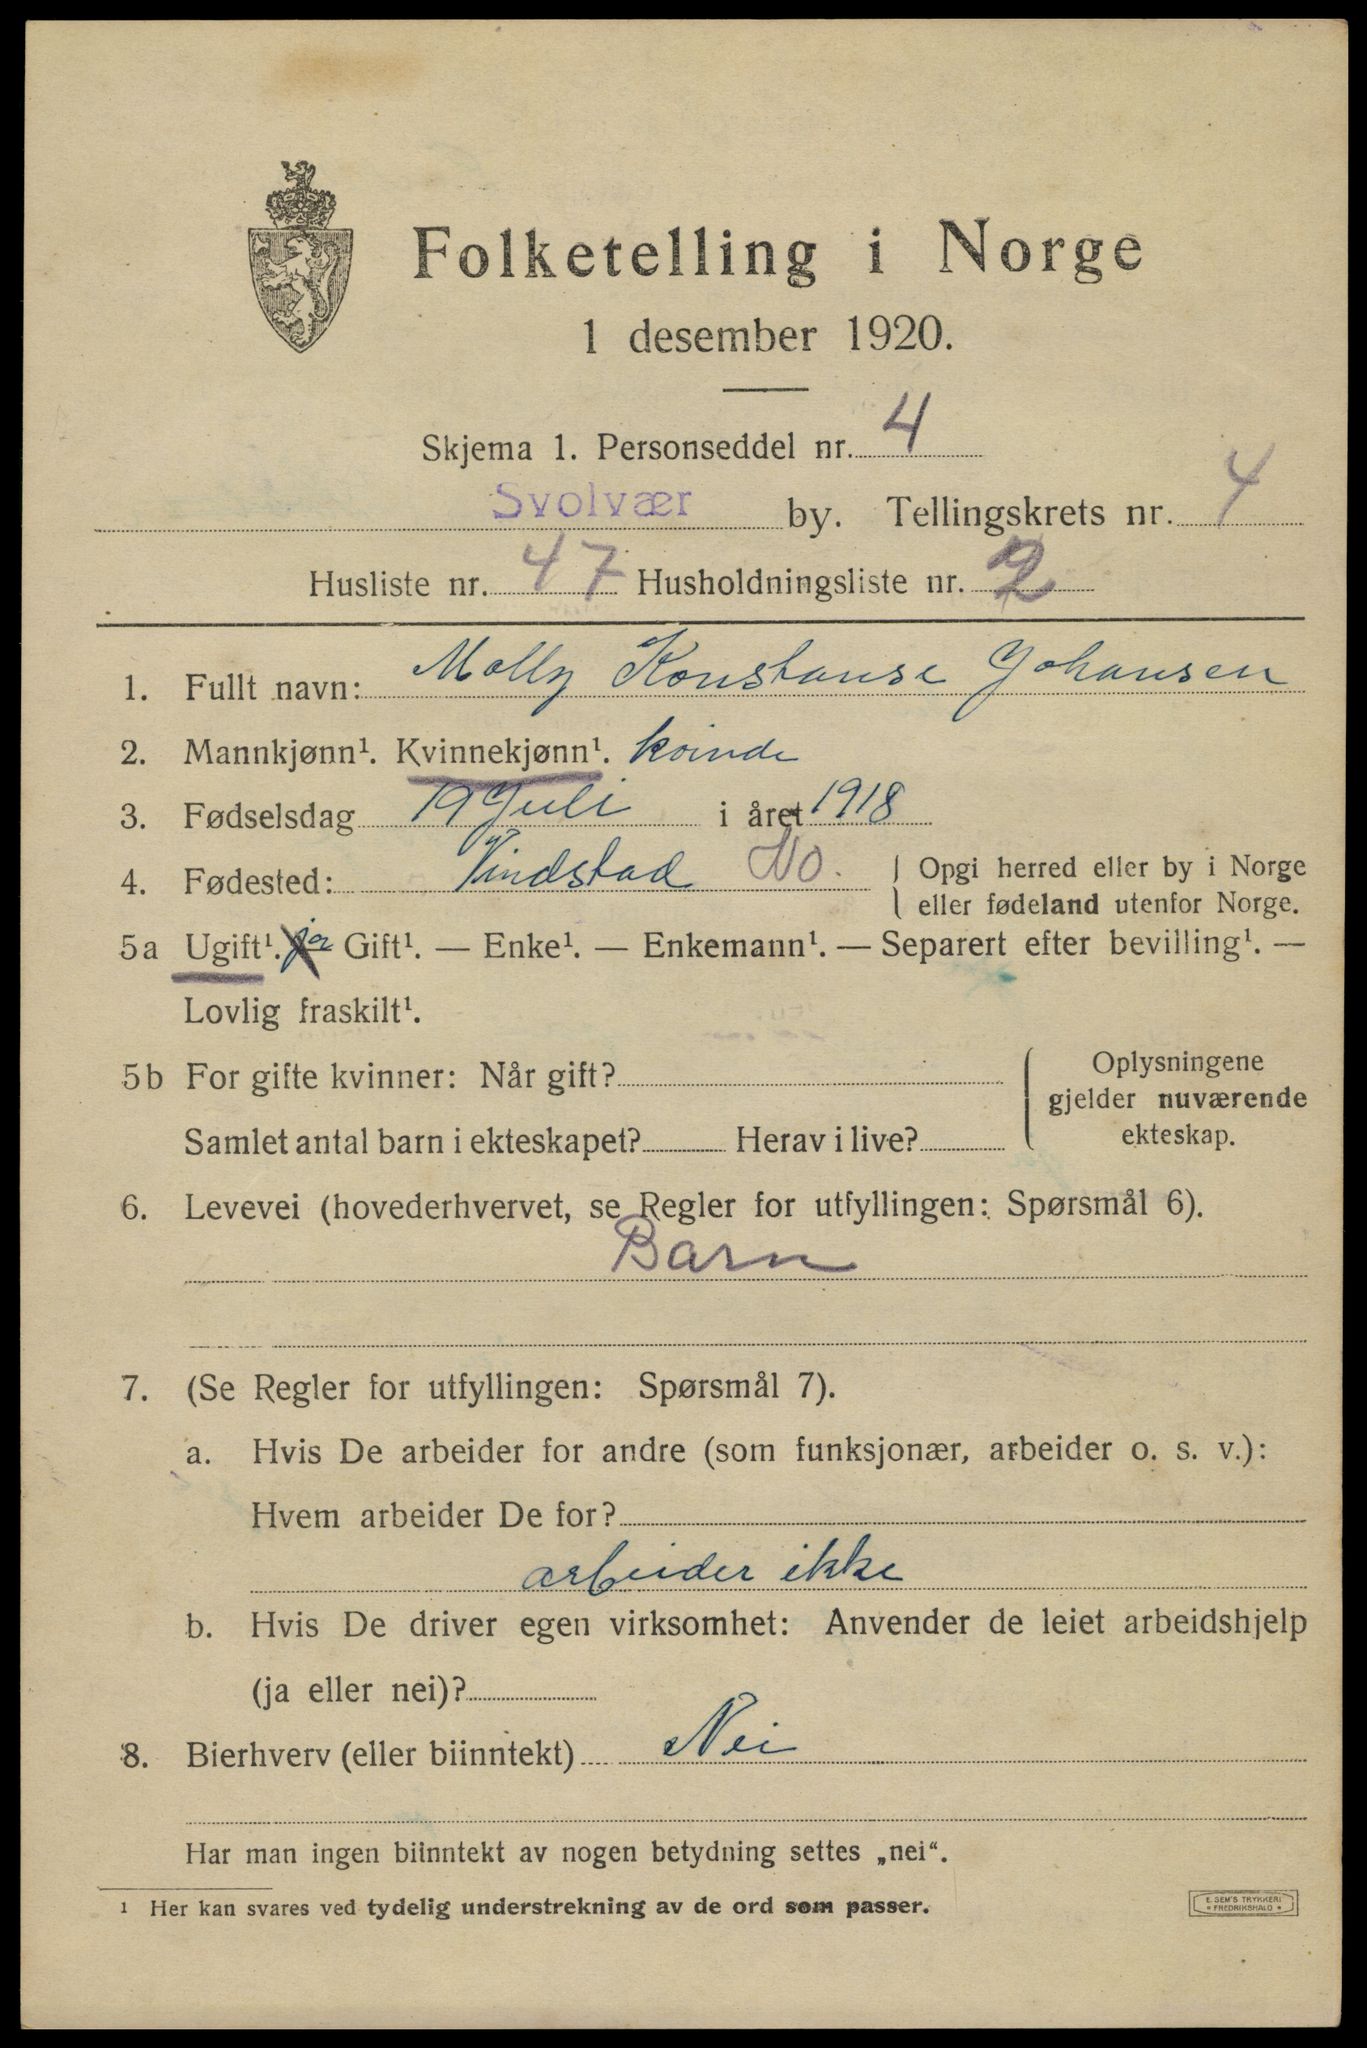 Folketelling i Norge
1 desember 1920.
Skjema 1. Personseddel nr. 4
Svolvær by. Tellingskrets nr. 4
Husliste nr. 47 Husholdningsliste nr. 2
1. Fullt navn: Molly Konstanse Johansen
2. Mannkjønn¹. Kvinnekjønn¹. kvinde
3. Fødselsdag 19 Juli i året 1918
4. Fødested: Vindstad No. Opgi herred eller by i Norge
eller fødeland utenfor Norge.
5a Ugift¹. ja Gift¹. — Enke¹. — Enkemann¹. — Separert efter bevilling¹. —
Lovlig fraskilt¹.
5b For gifte kvinner: Når gift?
Samlet antal barn i ekteskapet? Herav i live?
Oplysningene
gjelder nuværende
ekteskap.
6. Levevei (hovederhvervet, se Regler for utfyllingen: Spørsmål 6).
Barn
7. (Se Regler for utfyllingen: Spørsmål 7).
a. Hvis De arbeider for andre (som funksjonær, arbeider o. s. v.):
Hvem arbeider De for?
arbeider ikke
b. Hvis De driver egen virksomhet: Anvender de leiet arbeidshjelp
(ja eller nei)?
8. Bierhverv (eller biinntekt) Nei
Har man ingen biinntekt av nogen betydning settes „nei“.
¹ Her kan svares ved tydelig understrekning av de ord som passer.
E. SEM'S TRYKKERI
* FREDRIKSHALD *